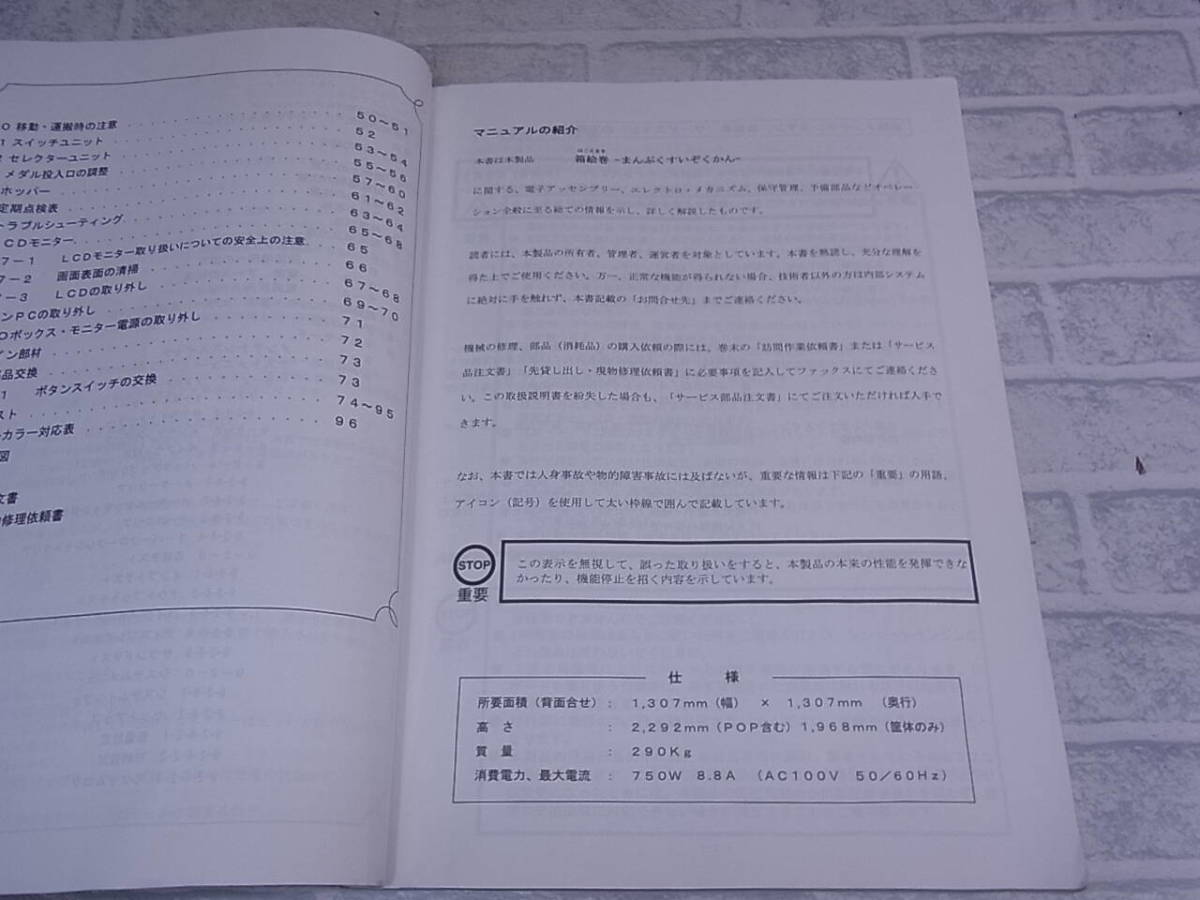 ０ 移動・運搬時の注意 ５０～５１
１ スイッチユニット ５２
２ セレクターユニット ５３～５４
メダル投入口の調整 ５５～５６
ホッパー ５７～６０
定期点検表 ６１～６２
トラブルシューティング ６３～６４
ＬＣＤモニター ６５～６８
７－１ ＬＣＤモニター取り扱いについての安全上の注意 ６５
７－２ 画面表面の清掃 ６６
７－３ ＬＣＤの取り外し ６７～６８
ンＰＣの取り外し ６９～７０
Ｏボックス・モニター電源の取り外し ７１
イン部材 ７２
部品交換 ７３
１ ボタンスイッチの交換 ７３
スト ７４～９５
カラー対応表 ９６
図
文書
修理依頼書
マニュアルの紹介
はこえまき
本書は本製品 箱絵巻 -まんぷくすいぞくかん-
に関する、電子アッセンブリー、エレクトロ・メカニズム、保守管理、予備部品などオペレー
ション全般に至る総ての情報を示し、詳しく解説したものです。
読者には、本製品の所有者、管理者、運営者を対象としています。本書を熟読し、充分な理解を
得た上でご使用ください。万一、正常な機能が得られない場合、技術者以外の方は内部システム
に絶対に手を触れず、本書記載の「お問合せ先」までご連絡ください。
機械の修理、部品（消耗品）の購入依頼の際には、巻末の「訪問作業依頼書」または「サービス
部品注文書」「先貸し出し・現物修理依頼書」に必要事項を記入してファックスにてご連絡くださ
い。この取扱説明書を紛失した場合も、「サービス部品注文書」にてご注文いただければ入手で
きます。
なお、本書では人身事故や物的障害事故には及ばないが、重要な情報は下記の「重要」の用語、
アイコン（記号）を使用して太い枠線で囲んで記載しています。
STOP
重要
この表示を無視して、誤った取り扱いをすると、本製品の本来の性能を発揮できな
かったり、機能停止を招く内容を示しています。
仕 様
所要面積（背面合せ）： １,３０７mm（幅） × １,３０７mm （奥行）
高 さ ： ２,２９２mm（ＰＯＰ含む）１,９６８mm（筐体のみ）
質 量 ： ２９０Kg
消費電力、最大電流 ： ７５０W ８.８A （AC１００V ５０／６０Hz）